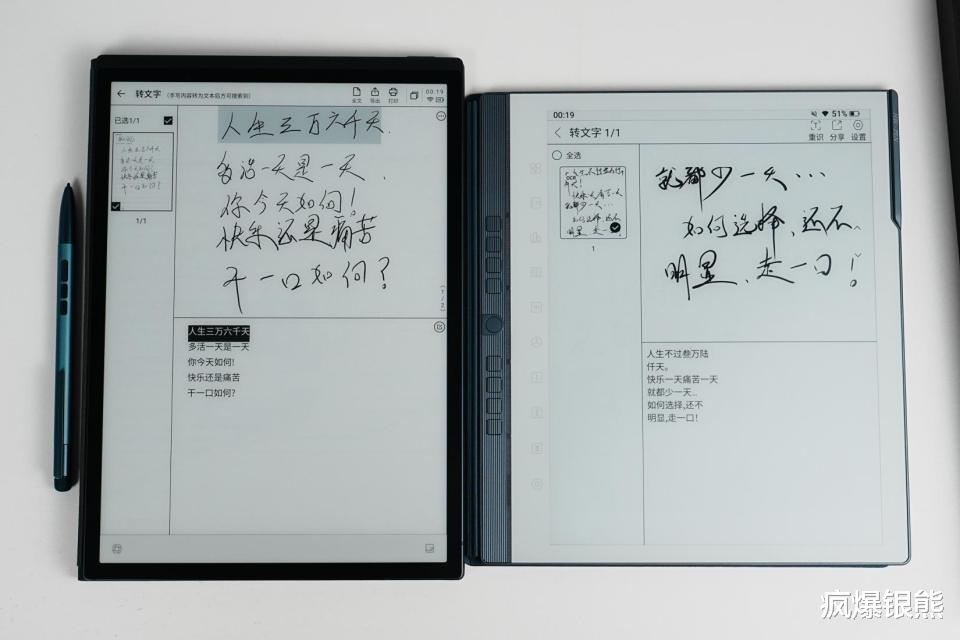 00:19
转文字 (手写内容转为文本后方可搜索到)
全文 导出 打印
已选1/1
1/1
人生三万六千天.
多活一天是一天.
你今天如何!
快乐还是痛苦
干一口如何?
(1/2)
人生三万六千天
多活一天是一天
你今天如何!
快乐还是痛苦
干一口如何?
00:19
51%
转文字 1/1
重识 分享 设置
全选
1
就都少一天...
如何选择、还不、
明显、走一口!
人生不过叁万陆
仟天。
快乐一天痛苦一天
就都少一天..
如何选择,还不
明显,走一口!
疯爆银熊